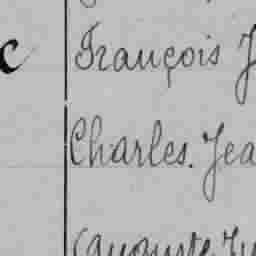 c François J
Charles. Jea
Auguste Ju